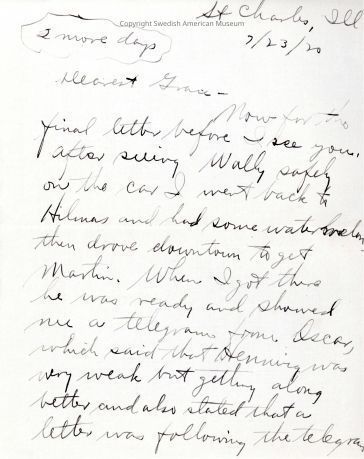 Copyright Swedish American Museum
St Charles, Ill
2 more days
7/23/20
Dearest Grace -
Now for the
final letter before I see you.
After seeing Wally safely
on the car I went back to
Hilmas and had some watermelon
then drove downtown to get
Martin. When I got there
he was ready and showed
me a telegram from Oscar,
which said that Henning was
very weak but getting along
better and also stated that a
letter was following the telegram